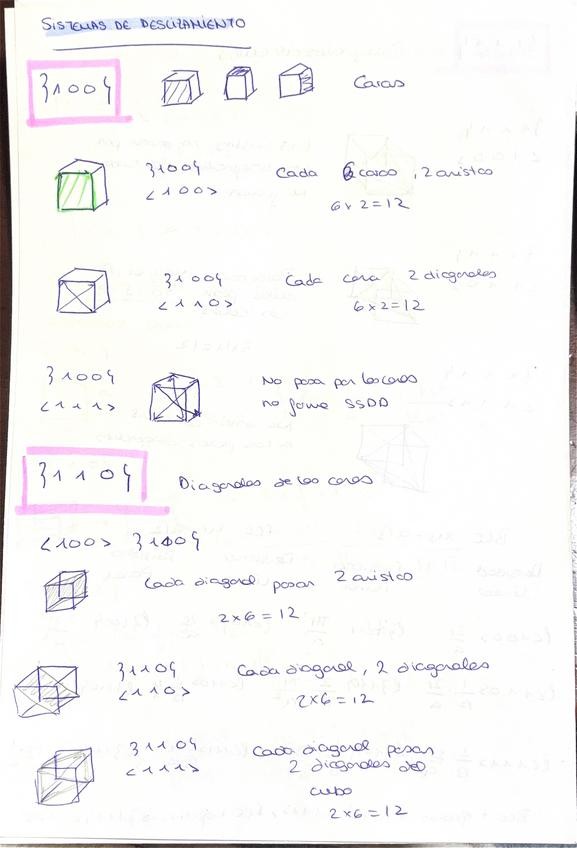 SISTEMAS DE DESLIZAMIENTO
{100} Caras
{100} Cada 6 caras, 2 aristas
<100> 6x2=12
{100} Cada cara 2 diagonales
<110> 6x2=12
{100} No pasa por las caras
<111> no forma SSDD
{110} Diagonales de las caras
<100> {110}
Cada diagonal pasan 2 aristas
2x6=12
{110} Cada diagonal, 2 diagonales
<110> 2x6=12
{110} Cada diagonal pasan
<111> 2 diagonales del
cubo
2x6=12